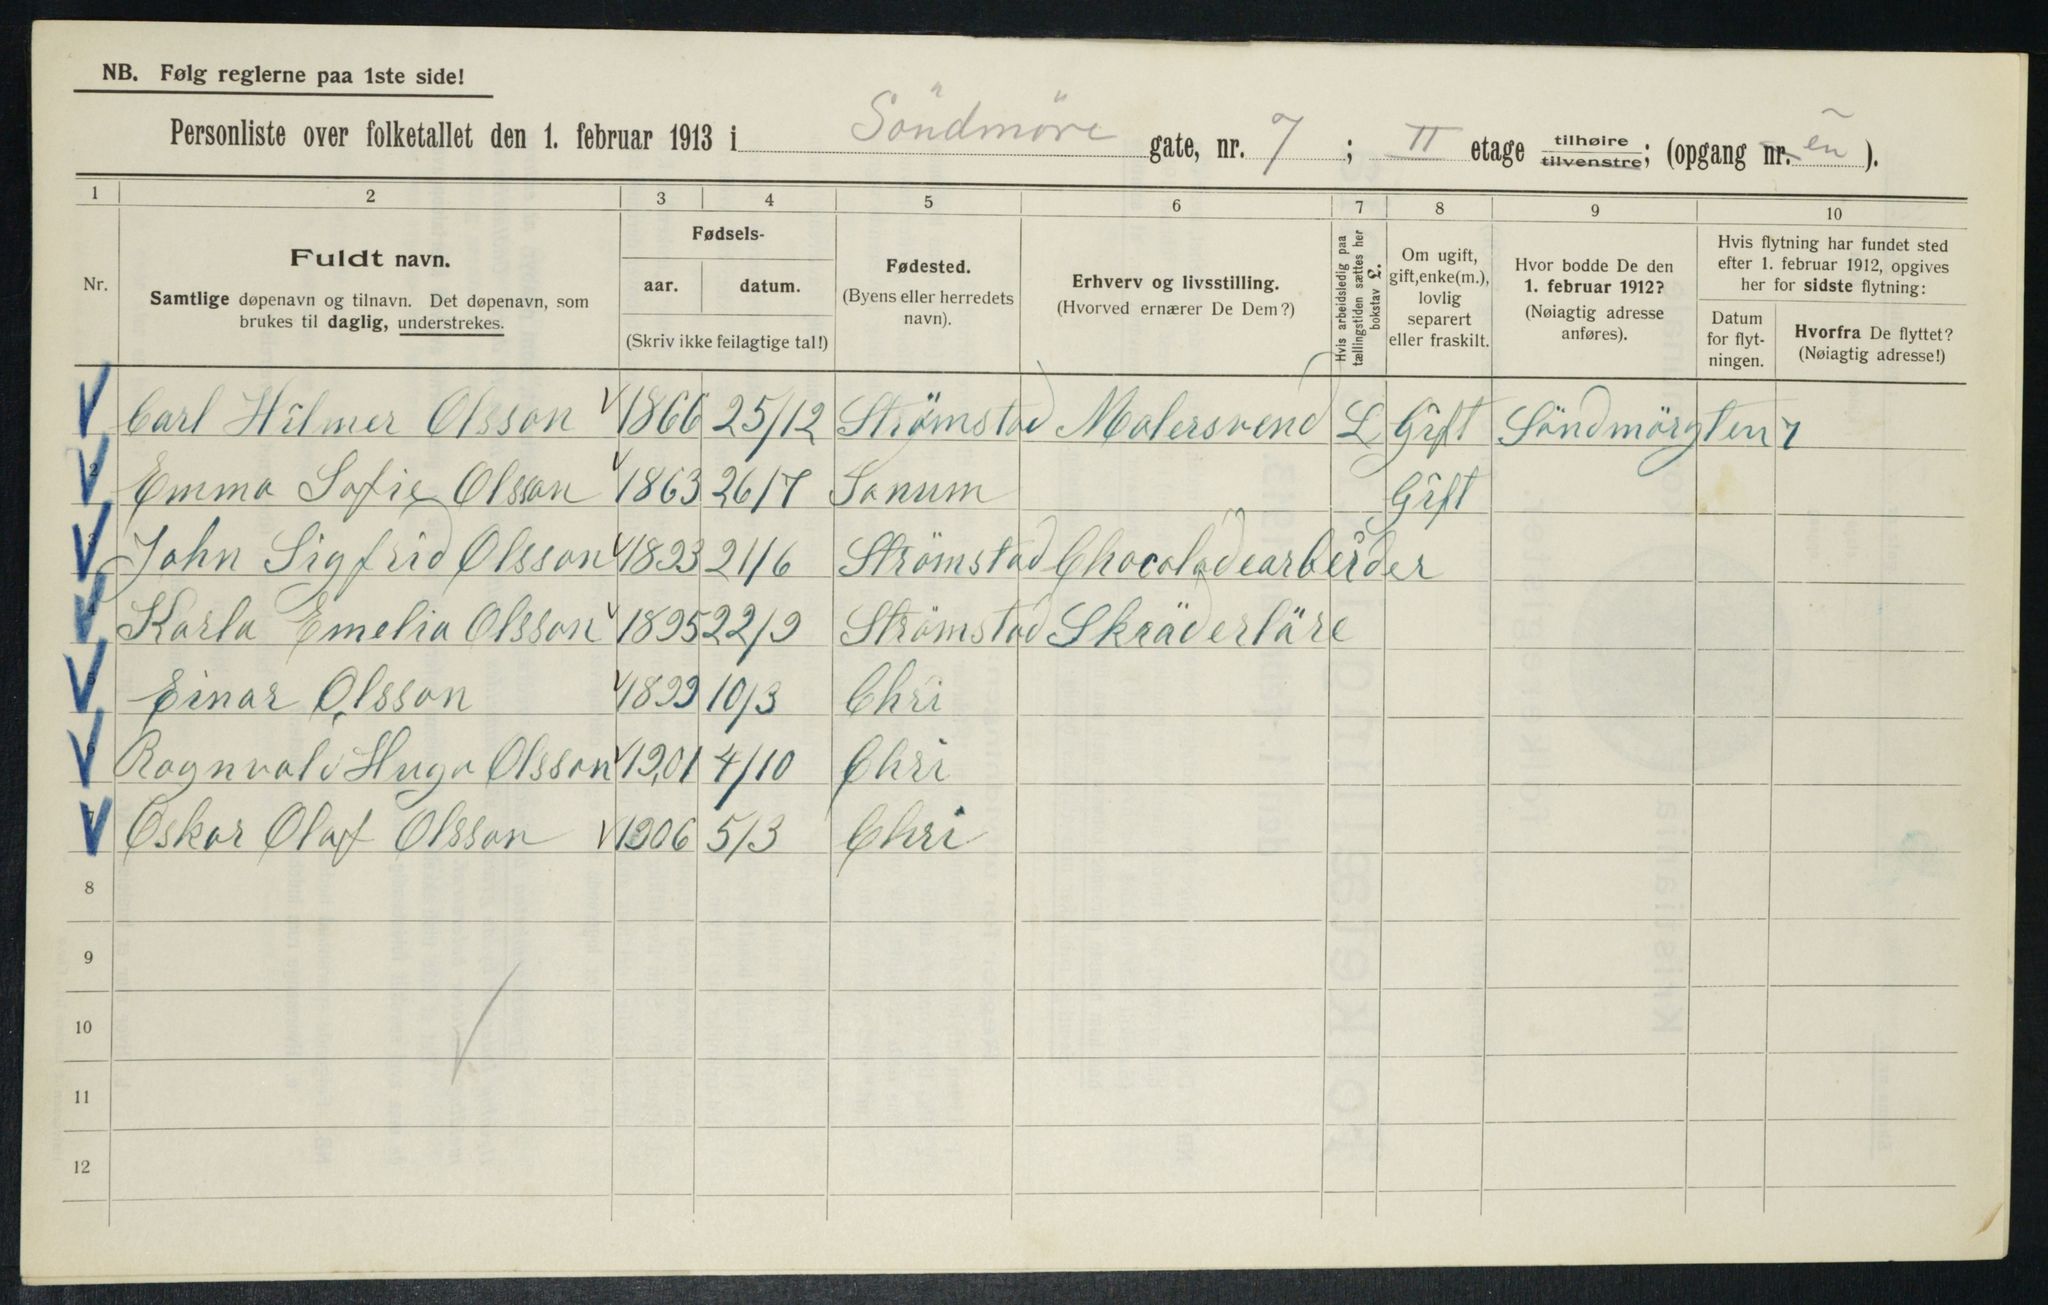 NB. Følg reglerne paa 1ste side!
Personliste over folketallet den 1. februar 1913 i Söndmöre gate, nr. 7 ; II etage tilhøire tilvenstre; (opgang nr. en ).
1 2 3 4 5 6 7 8 9 10
Nr.
Fuldt navn.
Samtlige døpenavn og tilnavn. Det døpenavn, som
brukes til daglig, understrekes.
Fødsels-
aar. datum.
(Skriv ikke feilagtige tal!)
Fødested.
(Byens eller herredets
navn).
Erhverv og livsstilling.
(Hvorved ernærer De Dem?)
Hvis arbeidsledig paa
tællingstiden sættes her
bokstav L.
Om ugift,
gift, enke(m.),
lovlig
separert
eller fraskilt.
Hvor bodde De den
1. februar 1912?
(Nøiagtig adresse
anføres).
Hvis flytning har fundet sted
efter 1. februar 1912, opgives
her for sidste flytning:
Datum
for flyt-
ningen.
Hvorfra De flyttet?
(Nøiagtig adresse!)
Carl Hilmer Olsson 1866 25/12 Strömstad Malersvend L Gift Söndmörgten 7
2 Emma Sofie Olsson 1863 26/7 Tanum Gift
3 John Sigfrid Olsson 1893 21/6 Strömstad Chocoladearbeider
4 Karla Emelia Olsson 1895 22/9 Strömstad Skräderläre
5 Einar Olsson 1899 10/3 Chri
6 Ragnvald Hugo Olsson 1901 4/10 Chri
7 Oskar Olaf Olsson 1906 5/3 Chri
8
9
10
11
12